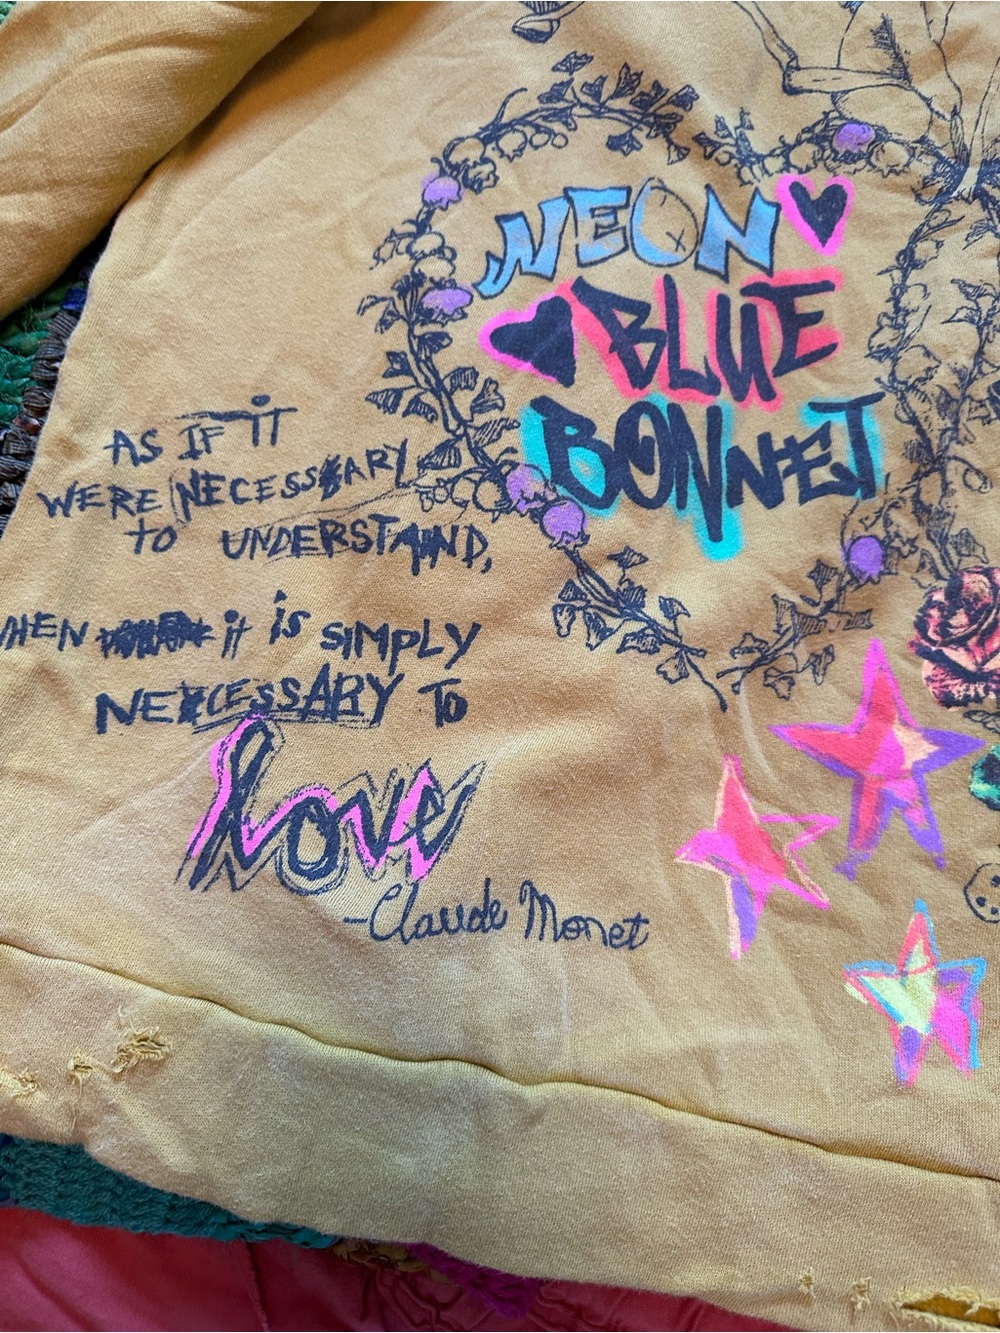 NEON
BLUE
BONNET
AS IF iT
WERE NECESSARY
to UNDERSTAND,
WHEN it is SIMPLY
NECESSARY To
love
-Claude Monet